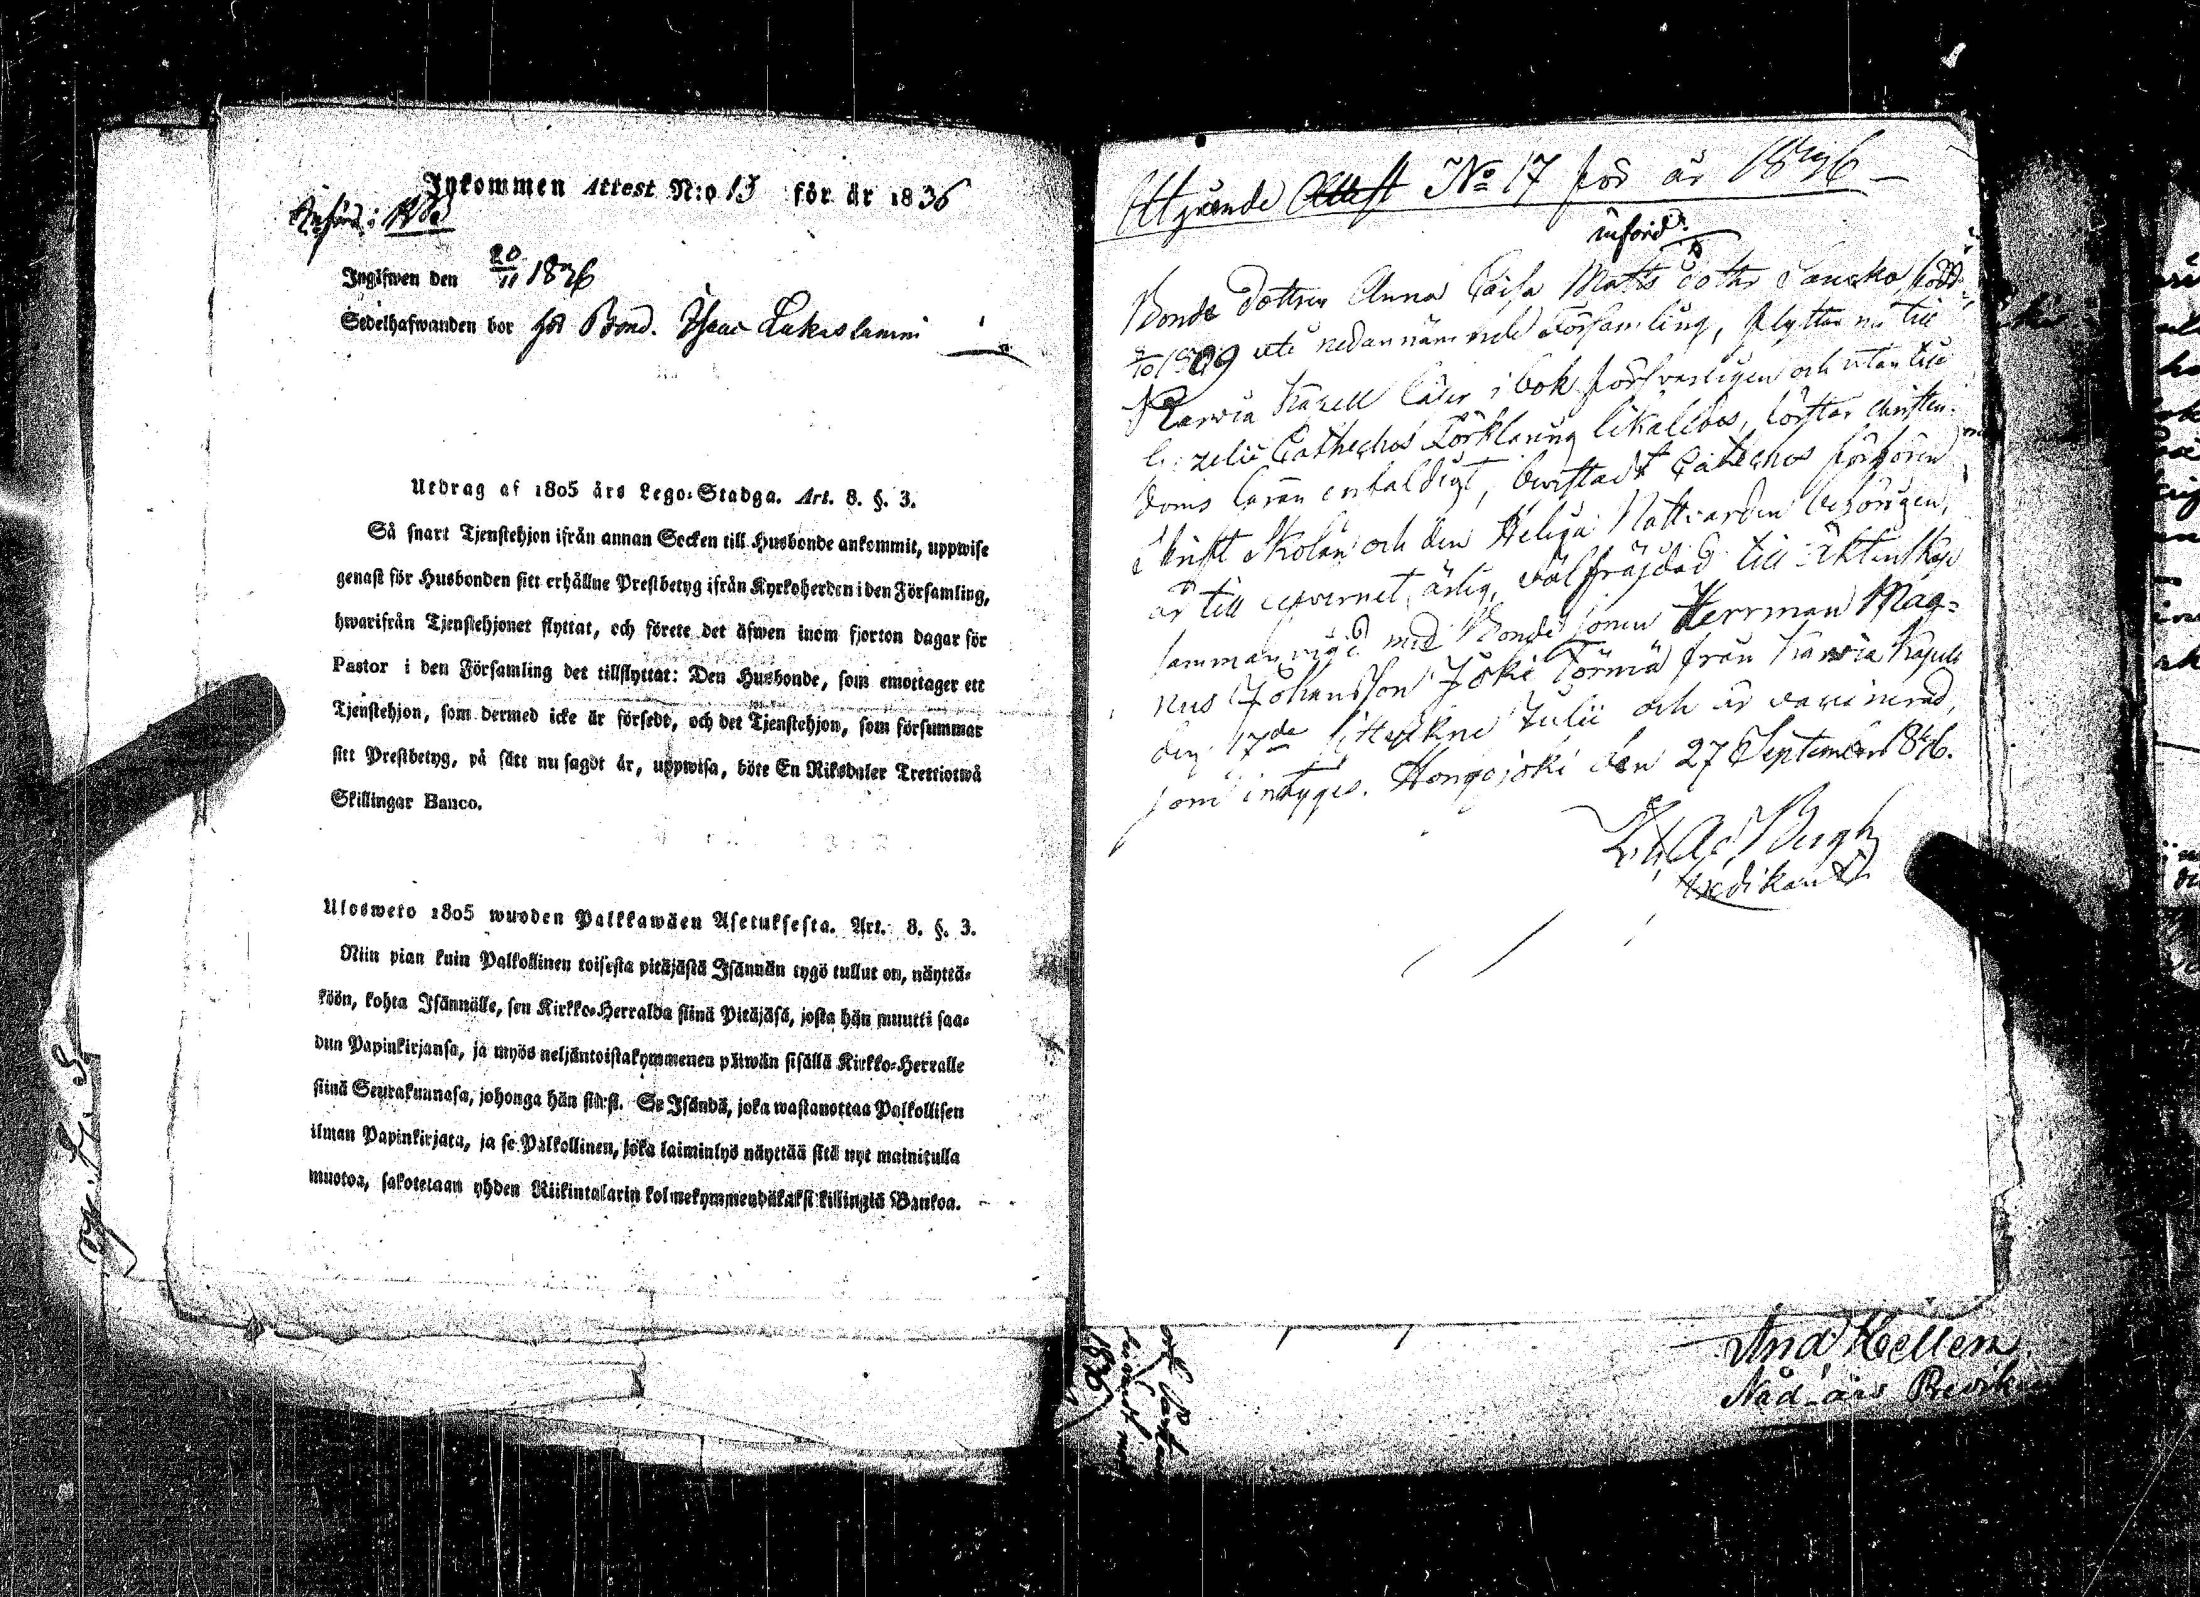 Inkommen Attest N:o 13 för år 1836
Införd i
Ingifwen den 20/11 1836
Sedelhafwanden bor hos Bond. Isaac Lukaslammi
Utdrag af 1805 års Lego-Stadga. Art. 8. §. 3.
Så snart Tjenstehjon ifrån annan Socken till Husbonde ankommit, uppwise
genast för Husbonden sitt erhållne Prestbetyg ifrån Kyrkoherden i den Församling,
hwarifrån Tjenstehjonet flyttat, och förete det äfwen inom fjorton dagar för
Pastor i den Församling det tillflyttat: Den Husbonde, som emottager ett
Tjenstehjon, som dermed icke är försedt, och det Tjenstehjon, som försummar
sitt Prestbetyg, på sätt nu sagdt är, uppwisa, böte En Riksdaler Trettiotwå
Skillingar Banco.
Ulosweto 1805 wuoden Palkkawäen Asetuksesta. Art. 8. §. 3.
Niin pian kuin Palkollinen toisesta pitäjästä Isännän tygö tullut on, näyttä-
köön, kohta Isännälle, sen Kirkko-Herralda siinä Pitäjäsä, josta hän muutti saa-
dun Papinkirjansa, ja myös neljäntoistakymmenen päiwän sisällä Kirkko-Herralle
siinä Seurakunnasa, johonga hän siirsi. Se Isändä, joka wastanottaa Palkollisen
ilman Papinkirjata, ja se Palkollinen, joka laiminlyö näyttää sitä nyt mainitulla
muotoa, sakotetaan yhden Riikintalarin kolmekymmendäkaksi killingiä Bankoa.
Utgående Attest No 17 för år 1836
införd
Bonde dottren Anna Caisa Matts dotter född
1809 uti nedannämnde Församling, flyttar nu till
Karvia Kapell läser i bok försvarligen och utan till
Cathechos Förklaring likaledes, förstår christen-
doms läran enfaldigt, bevistadt Catechos förhören
Skrift Skolan och den Heliga Nattvarden behörigen,
är till lefvernet ärlig, välfräjdad, till Äktenskap
sammanvigd med Bonde sonen Herrman Mag-
nus Johansson Jokі Törmä från Karvia Kapell
den 17de sistledne Julii och är vaccinerad,
som intygas. Honojoki den 27 September 1836.
Bergh
Predikant
And Hellen
Nåd-års Predik
1836